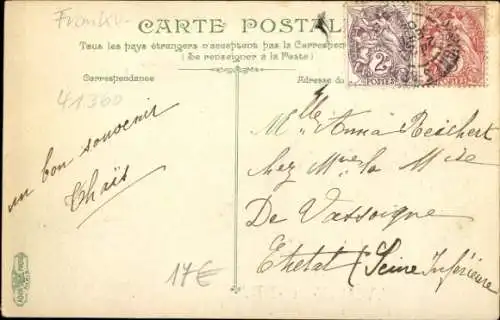 Frankr.
CARTE POSTALE
Tous les pays étrangers n'acceptent pas la Correspondance
(Se renseigner à la Poste)
Correspondance
Adresse du
2c
POSTES
POSTES
41360
un bon souvenir
Thaïs
Melle Anna Reichert
chez Mme la Mise
De Vassoigne
Etretat (Seine Inférieure
17€